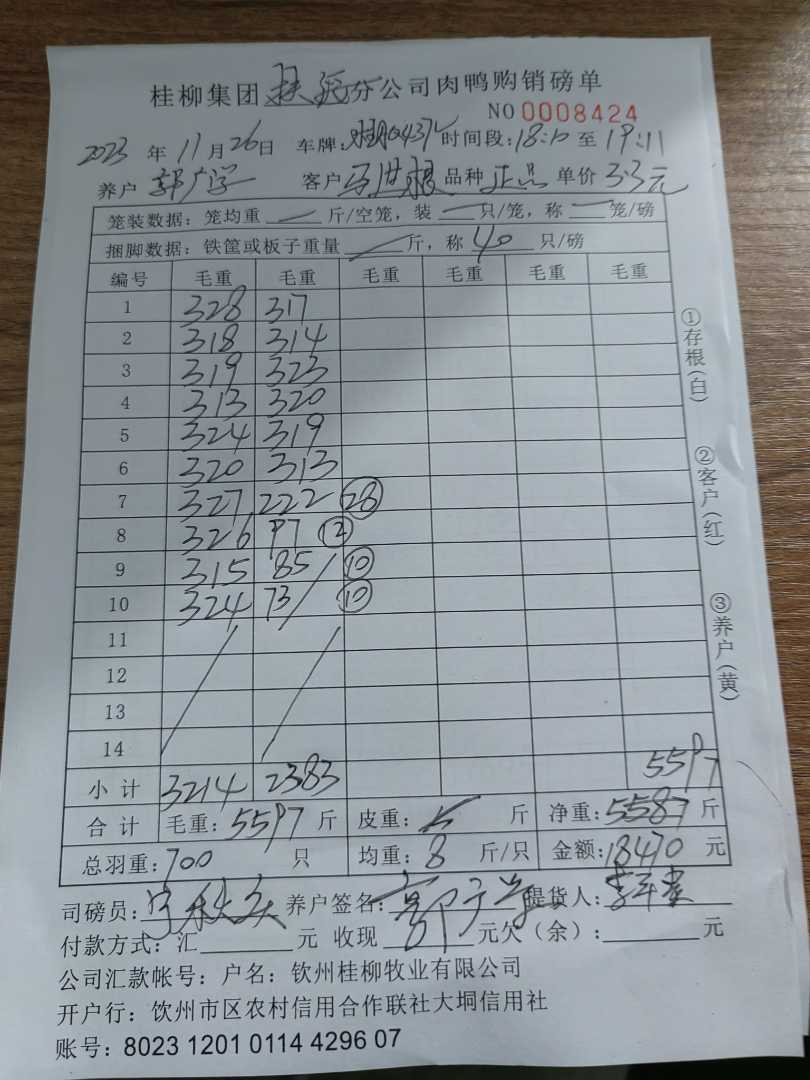 桂柳集团扶绥分公司肉鸭购销磅单
NO 0008424
2023年11月26日 车牌: 时间段:18:10至19:11
养户 郭广学 客户 马世根 品种 正品 单价 3.3元
笼装数据:笼均重 — 斤/空笼,装 — 只/笼,称 — 笼/磅
捆脚数据:铁筐或板子重量 斤,称 40 只/磅
编号 毛重 毛重 毛重 毛重 毛重 毛重
1 328 317
2 318 314
3 319 323
4 313 320
5 324 319
6 320 313
7 327 222 28
8 326 97
9 315 85 10
10 324 73 10
11
12
13
14
小计 3214 2383 5597
合计 毛重:5597斤 皮重: 斤 净重:5587斤
总羽重:700 只 均重:8 斤/只 金额:18470元
司磅员: 养户签名:郭广学 提货人:
付款方式:汇 元 收现 元欠(余): 元
公司汇款帐号:户名:钦州桂柳牧业有限公司
开户行:饮州市区农村信用合作联社大垌信用社
账号:8023 1201 0114 4296 07
①存根(白)
②客户(红)
③养户(黄)